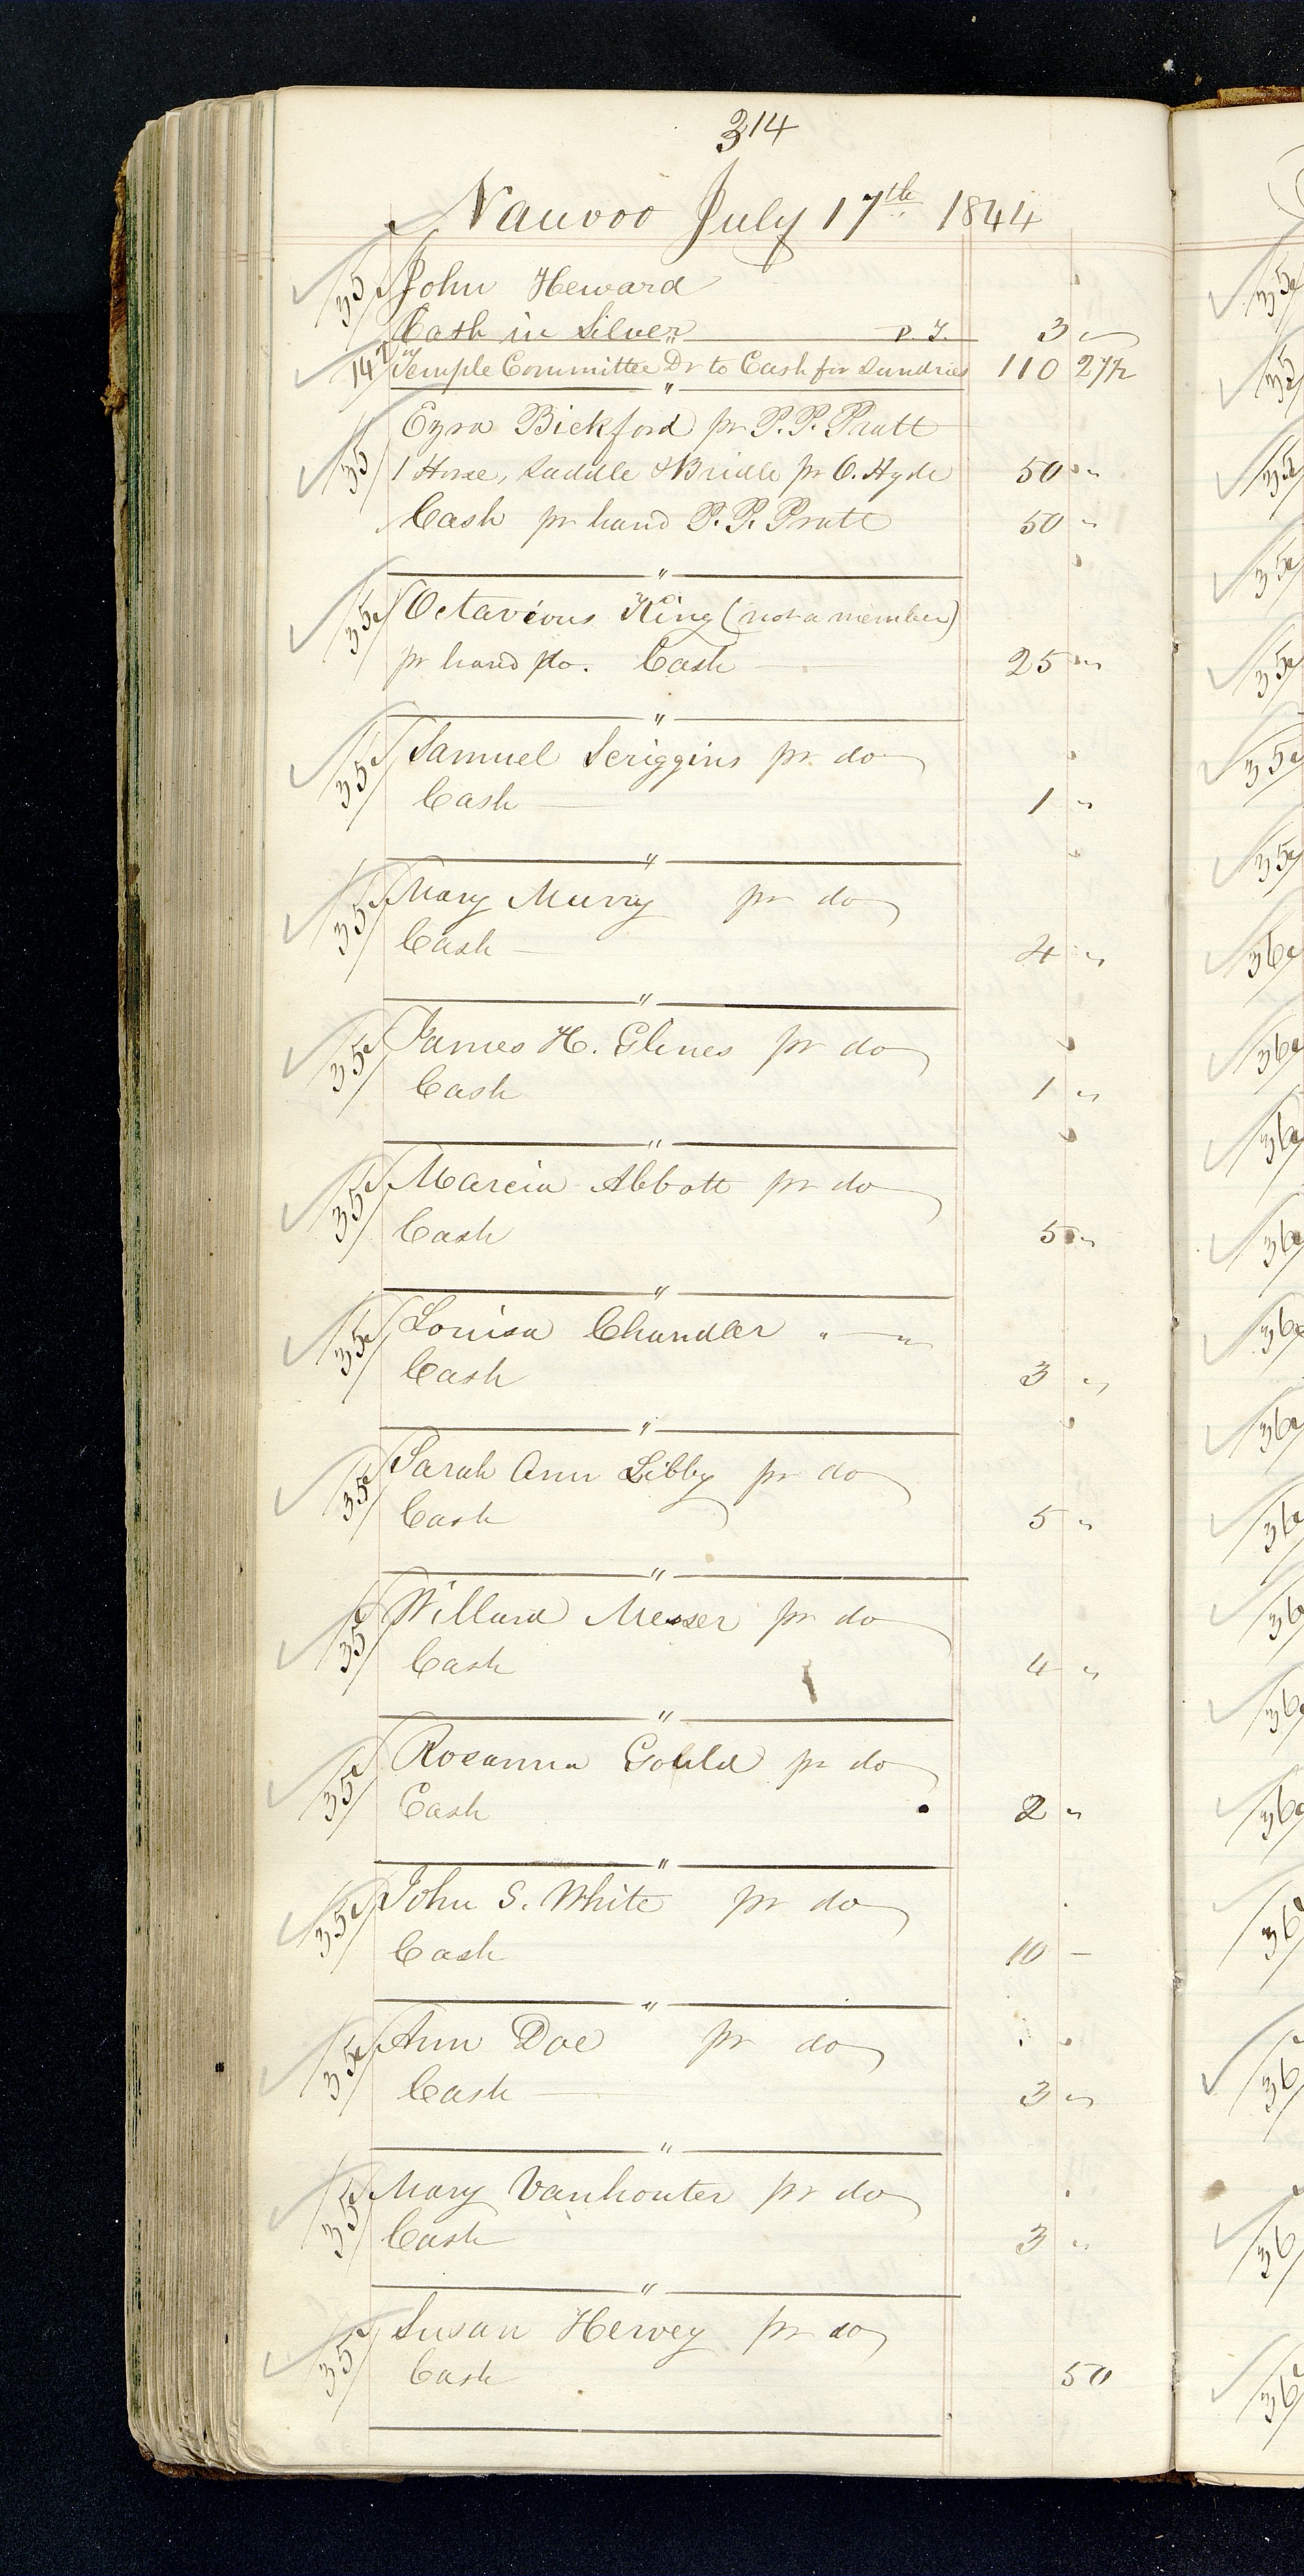 314
Nauvoo July 17th 1844
35 John Heward
Cash in Silver P. T. 3 "
142 Temple Committee Dr to Cash for Sundries 110 27½
"
35 Ezra Bickford pr P. P. Pratt
1 Horse, Saddle & Bridle pr O. Hyde 50 "
Cash pr hand P. P. Pratt 50 "
"
35 Octavious King (not a member)
pr hand do. Cash 25 "
"
35 Samuel Scriggins pr do
Cash 1 "
"
35 Mary Murry pr do
Cash 4 "
"
35 James H. Glines pr do
Cash 1 "
"
35 Marcia Abbott pr do
Cash 5 "
"
35 Louisa Chandler " "
Cash 3 "
"
35 Sarah Ann Libby pr do
Cash 5 "
"
35 Willard Messer pr do
Cash 4 "
"
35 Rosanna Gould pr do
Cash 2 "
"
35 John S. White pr do
Cash 10 –
"
35 Ann Doe pr do
Cash 3 "
"
35 Mary Vanhouter pr do
Cash 3 "
"
35 Susan Hervey pr do
Cash 50
35
35
35
35
35
35
35
36
36
36
36
36
36
36
36
36
36
36
36
36
36